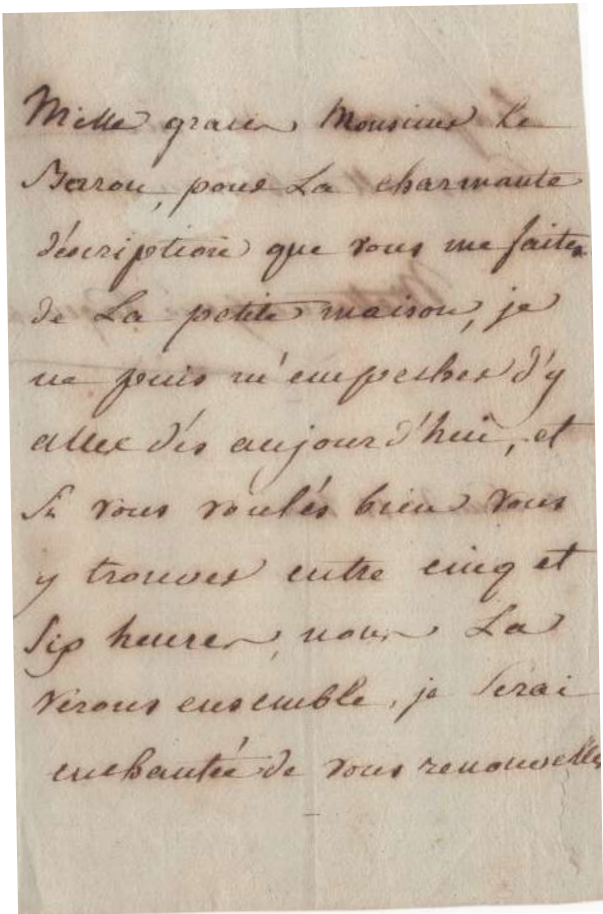 Mille graces Monsieur Le
Barron, pour La charmante
déscription que vous me faites
de La petite maison, je
ne puis m'empescher d'y
aller dés aujourd'hui, et
Si vous voulés bien vous
y trouver entre cinq et
Six heures, nous La
vérons ensemble, je Serai
enchantée de vous renouveller